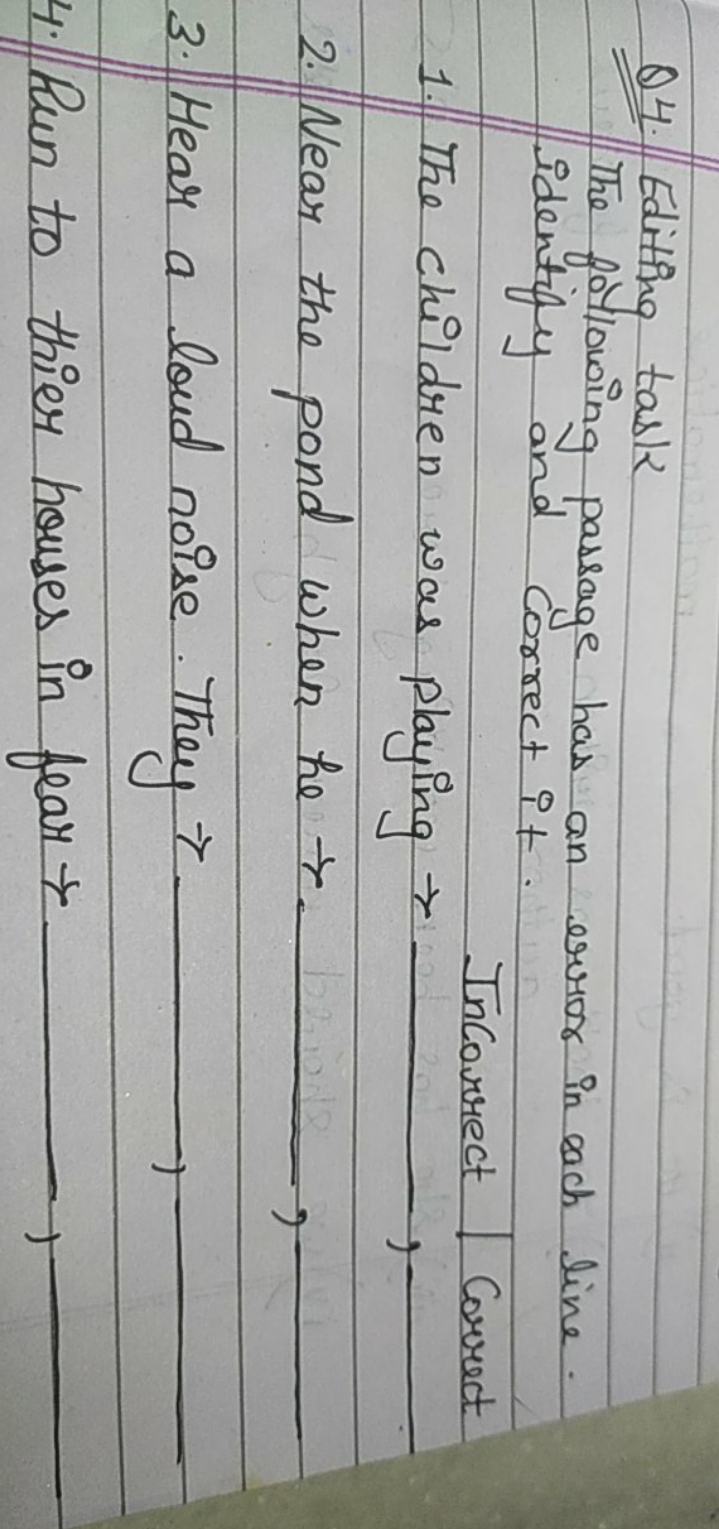 Q4. Editing task
The following passage has an error in each line.
identify and correct it.
Incorrect | Correct
1. The children was playing → ________, ________
2. Near the pond when he → ________, ________
3. Hear a loud noise. They → ________, ________
4. Run to thier houses in fear → ________, ________